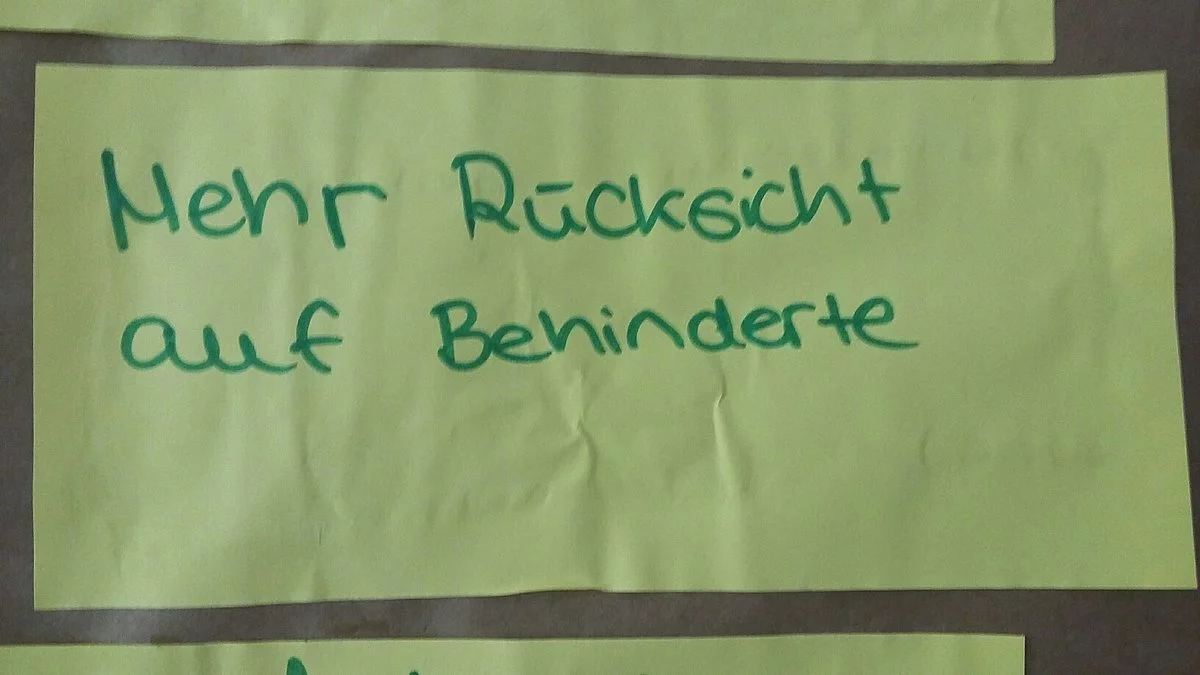 Mehr Rücksicht
auf Behinderte